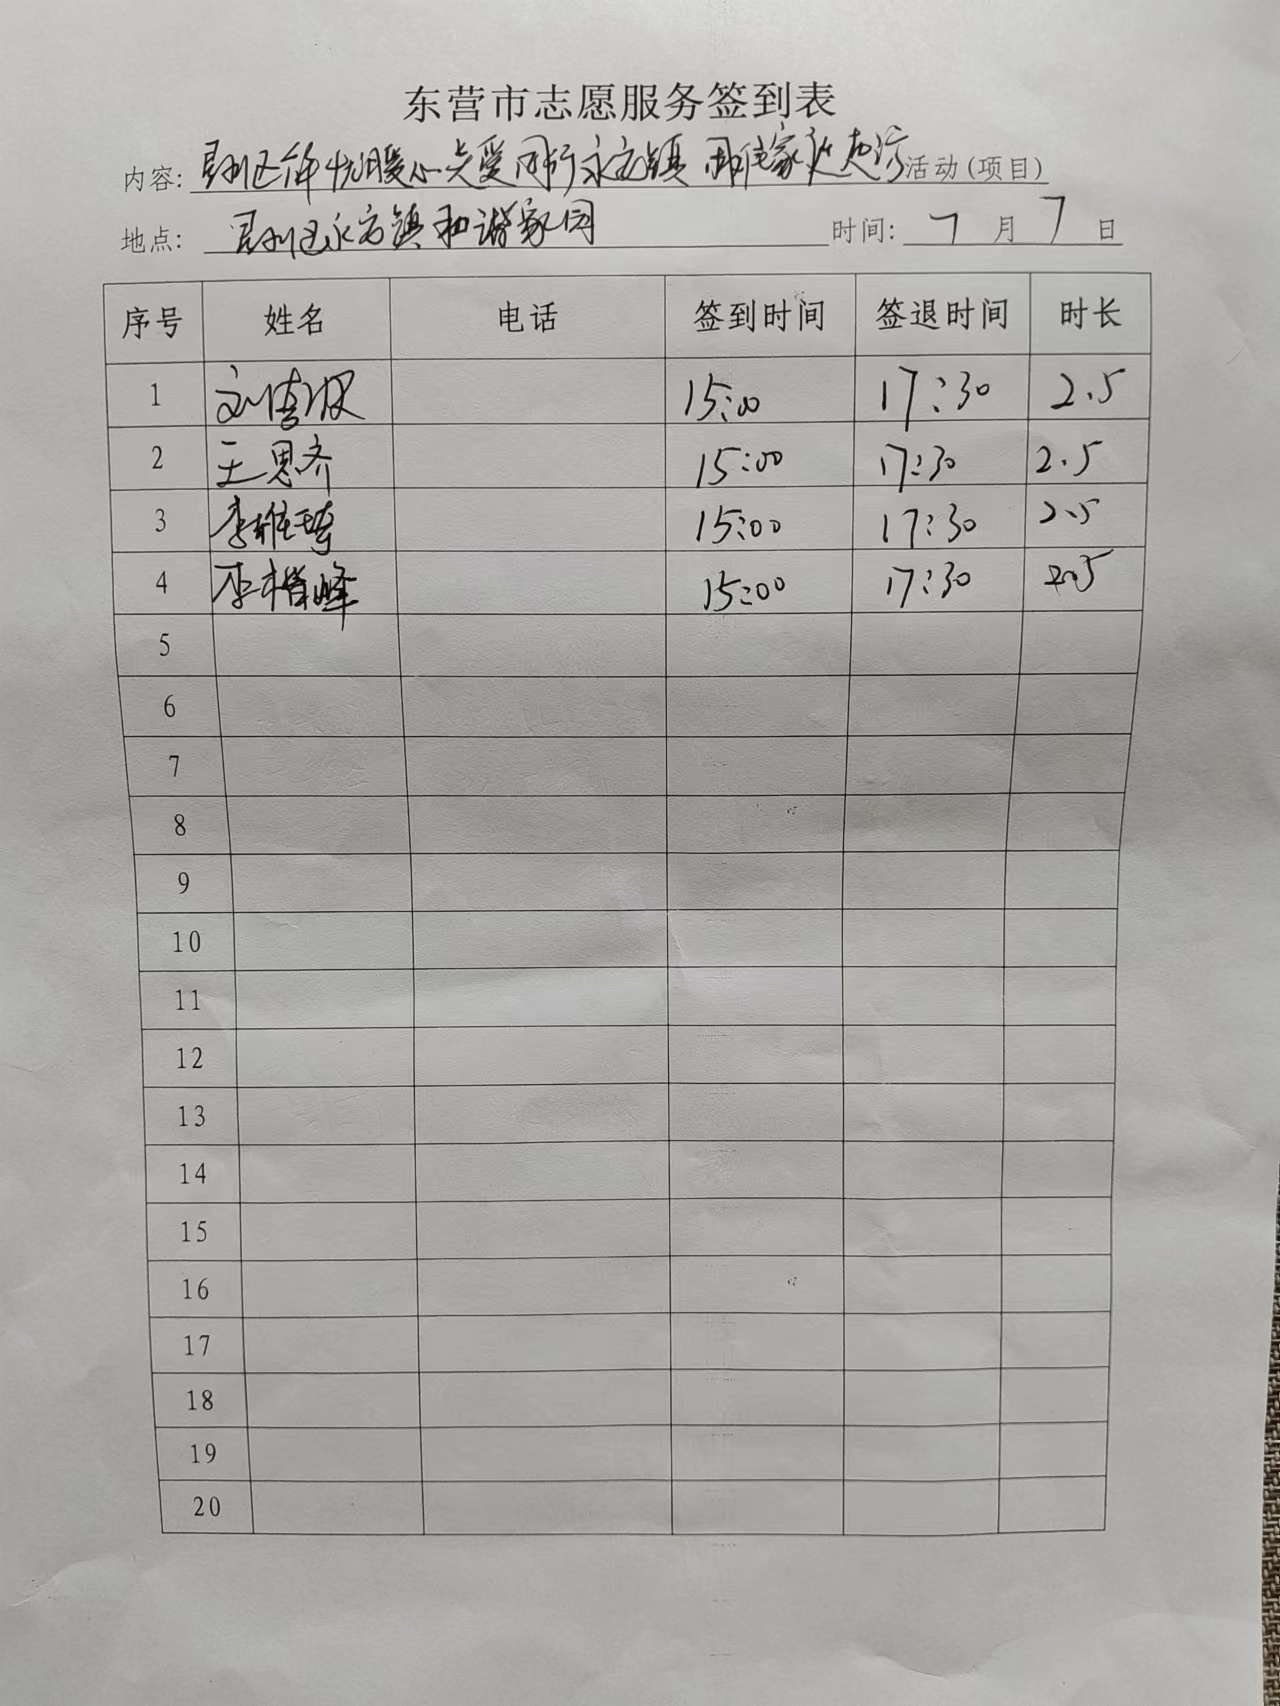 东营市志愿服务签到表
内容: 垦利区解忧暖心 关爱同行永安镇 活动(项目)
地点: 垦利区永安镇和谐家园 时间: 7 月 7 日
序号 姓名 电话 签到时间 签退时间 时长
1 15:00 17:30 2.5
2 王思齐 15:00 17:30 2.5
3 李维琦 15:00 17:30 2.5
4 峰 15:00 17:30 2.5
5
6
7
8
9
10
11
12
13
14
15
16
17
18
19
20